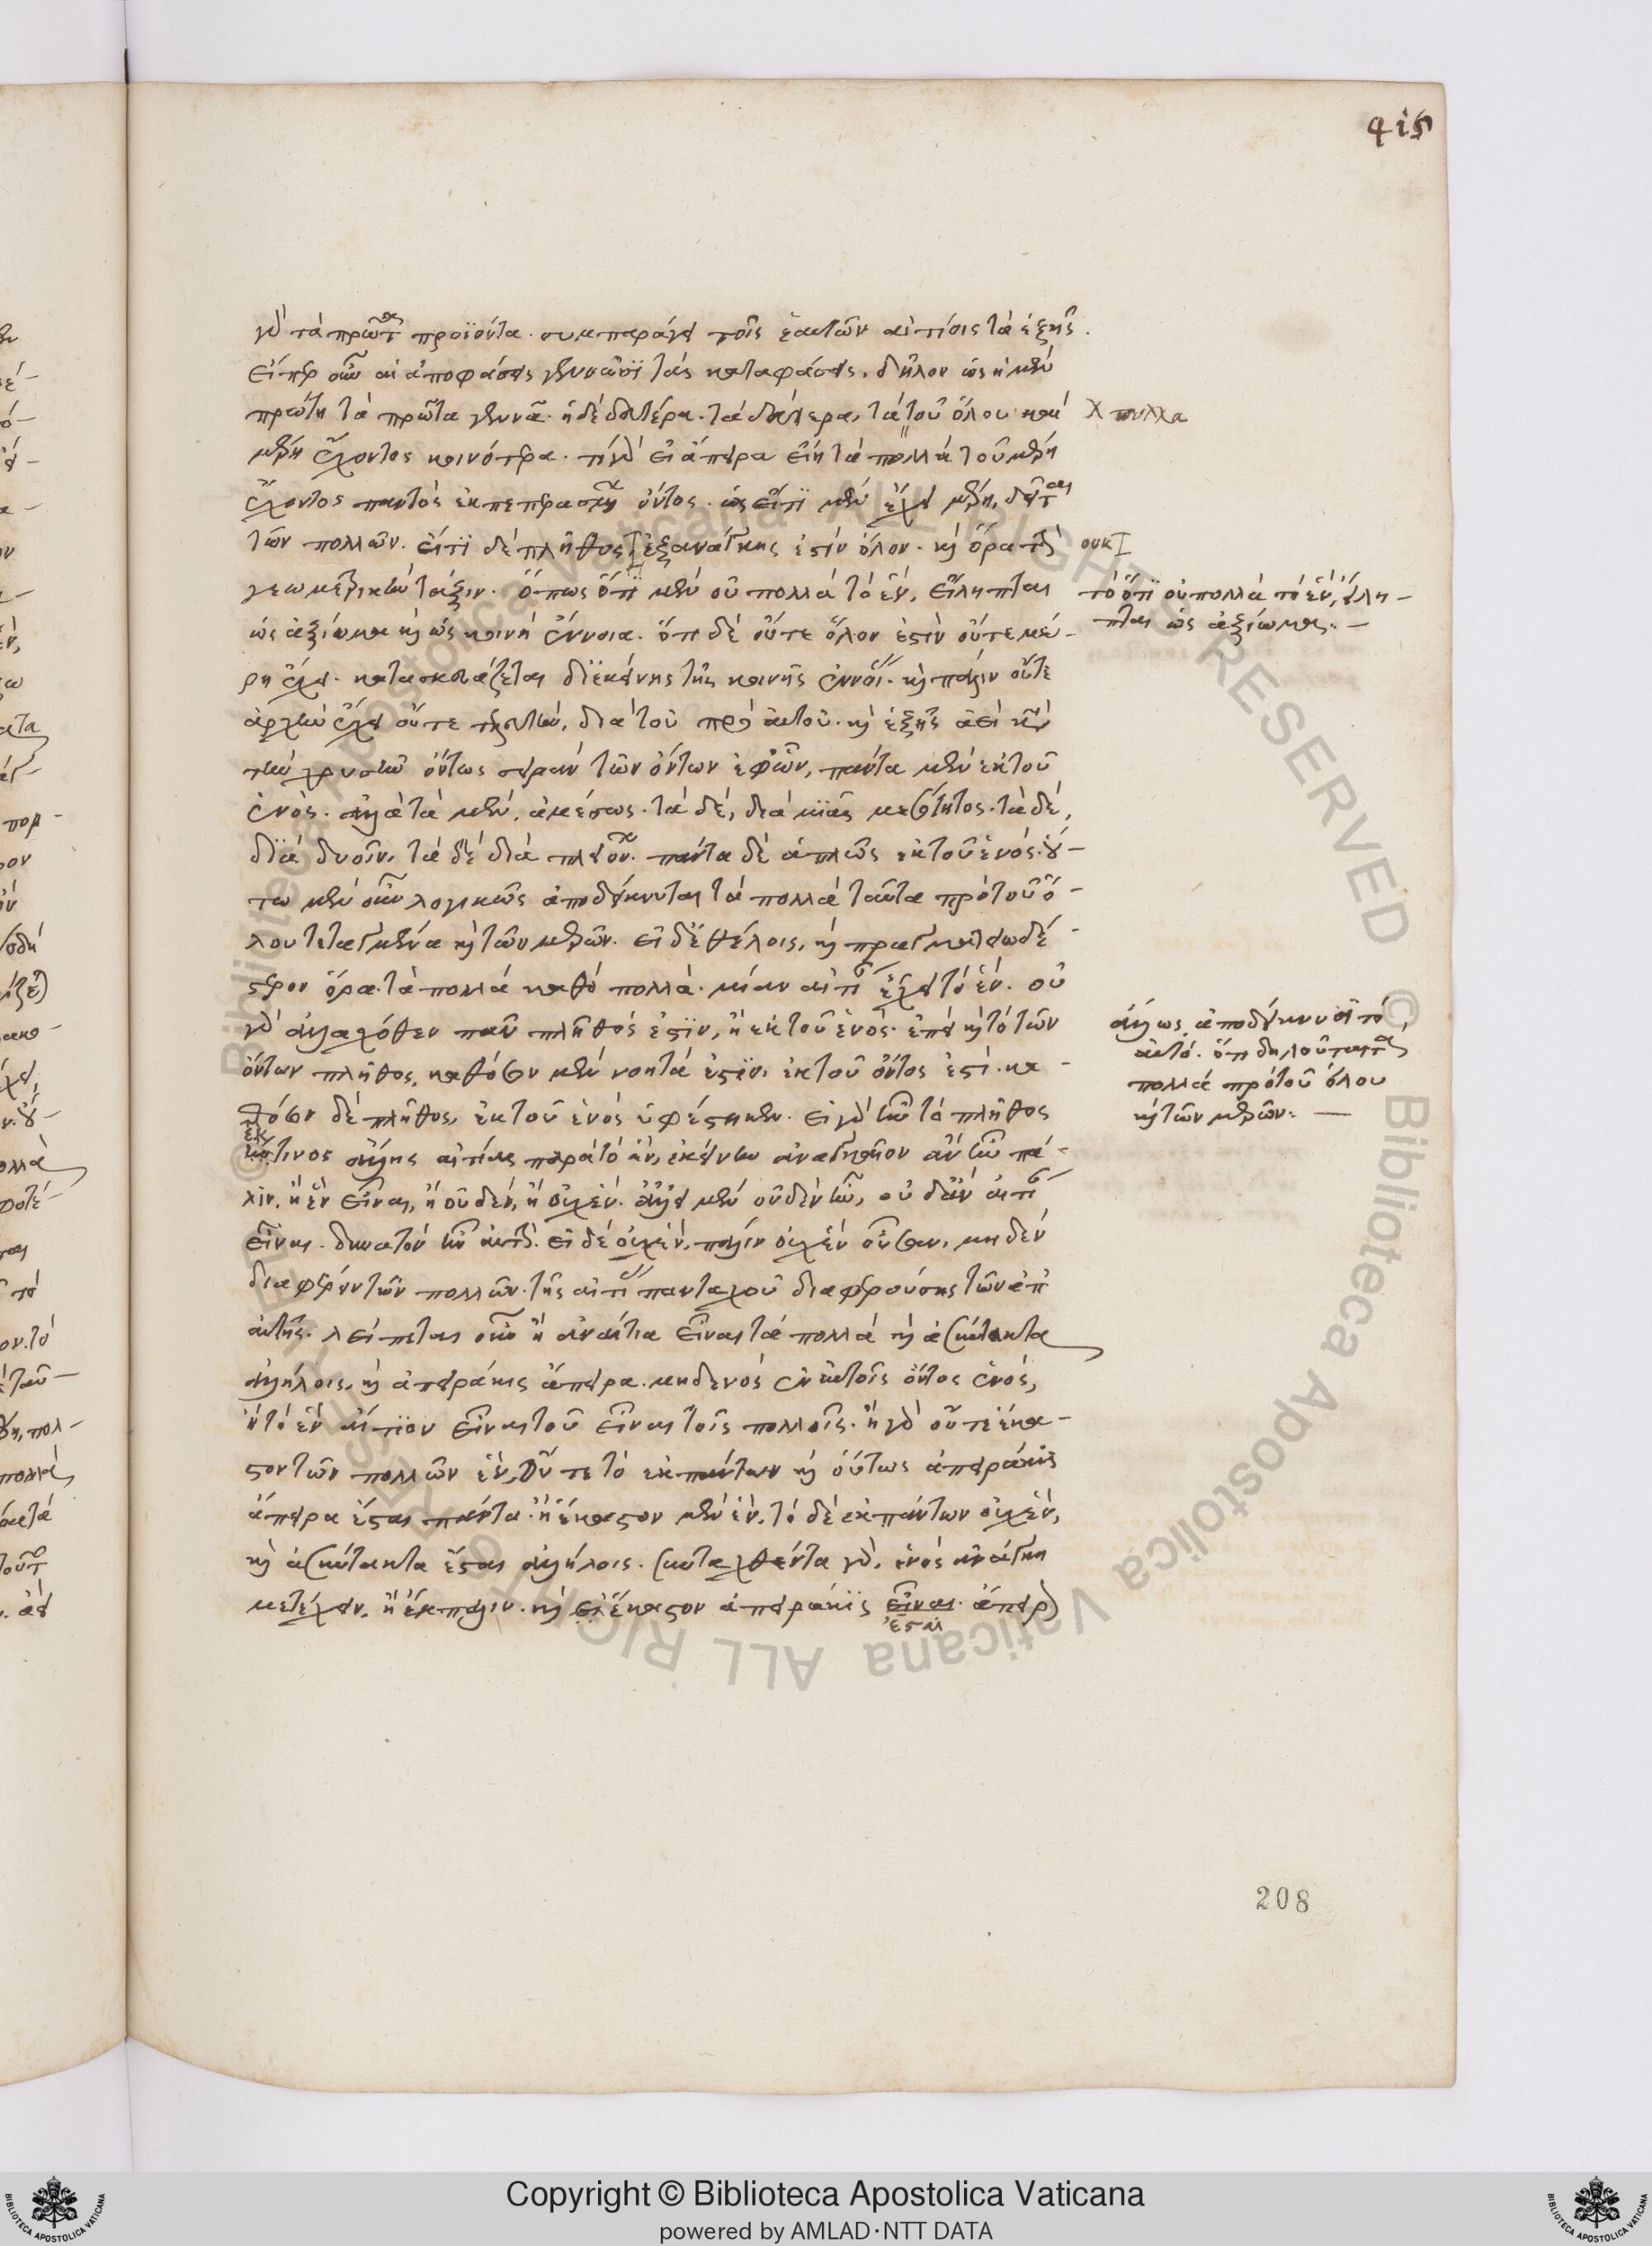 415
γὰρ τὰ πρώτως προϊόντα. συμπαράγει τοῖς ἑαυτῶν αἰτίοις τὰ ἑξῆς.
εἴπερ οὖν αἱ ἀποφάσεις γεννῶσι τὰς καταφάσεις, δῆλον ὡς ἡ μὲν
πρώτη τὰ πρῶτα γεννᾷ. ἡ δὲ δευτέρα. τὰ δεύτερα, τὰ τοῦ ὅλου καὶ
μέρη ἔχοντος κοινότερα. τί γὰρ εἰ ἄπειρα εἴη τὰ πολλὰ τοῦ μέρη
ἔχοντος παντὸς ἐκπεπερασμένου ὄντος. ὡς εἴ τι μὲν ἔχει μέρη, δεῖται
τῶν πολλῶν. εἴ τι δὲ πλῆθος ἐξανάγκης ἐστὶν ὅλον. καὶ ὅρα τὴν
γεωμετρικὴν τάξιν. ὅπως ὅτι μὲν οὐ πολλὰ τὸ ἕν, εἴληπται
ὡς ἀξίωμα καὶ ὡς κοινὴ ἔννοια. ὅτι δὲ οὔτε ὅλον ἐστὶν οὔτε μέ-
ρη ἔχει. κατασκευάζεται δι' ἐκείνης τῆς κοινῆς ἐννοίας. καὶ πάλιν οὔτε
ἀρχὴν ἔχει οὔτε τελευτήν, διὰ τοῦ πρὸ αὐτοῦ. καὶ ἑξῆς ἀεὶ κατὰ
τὴν χρυσῆν ὄντως σειρὰν τῶν ὄντων ἐφ' ὧν, πάντα μὲν ἐκ τοῦ
ἑνός. ἀλλὰ τὰ μὲν, ἀμέσως. τὰ δέ, διὰ μιᾶς μεσότητος. τὰ δέ,
διὰ δυοῖν, τὰ δὲ διὰ πλειόνων. πάντα δὲ ἁπλῶς ἐκ τοῦ ἑνός. οὕ-
τω μὲν οὖν λογικῶς ἀποδείκνυται τὰ πολλὰ ταῦτα πρὸ τοῦ ὅ-
λου τεταγμένα καὶ τῶν μερῶν. εἰ δὲ θέλοις, καὶ πραγματειωδέ-
στερον ὅρα. τὰ πολλὰ καθὸ πολλὰ. μίαν αἰτίαν ἔχει τὸ ἕν. οὐ
γὰρ ἀλλαχόθεν πᾶν πλῆθός ἐστιν, ἢ ἐκ τοῦ ἑνός. ἐπεὶ καὶ τὸ τῶν
ὄντων πλῆθος, καθόσον μὲν νοητά ἐστιν, ἐκ τοῦ ὄντος ἐστί. κα-
θόσον δὲ πλῆθος, ἐκ τοῦ ἑνὸς ὑφέστηκεν. εἰ γὰρ ἦν τὸ πλῆθος
ἔκ τινος ἄλλης αἰτίας παρὰ τὸ ἕν, ἐκείνην ἀναγκαῖον ἂν ἦν πά-
λιν, ἢ ἓν εἶναι, ἢ οὐδέν, ἢ οὐχ ἕν. ἀλλ' εἰ μὲν οὐδὲν ἦν, οὐδ' ἂν αἰτίαν
εἶναι. δυνατὸν ἦν αὐτὸ. εἰ δὲ οὐχ ἕν, πάλιν οὐχ ἓν οὖσαν, μηδὲν
διαφέρειν τῶν πολλῶν. τῆς αἰτίας πανταχοῦ διαφερούσης τῶν ἀπ'
αὐτῆς. λείπεται οὖν ἢ ἀναίτια εἶναι τὰ πολλὰ καὶ ἀσύντακτα
ἀλλήλοις, καὶ ἀπειράκις ἄπειρα. μηδενὸς ἐν αὐτοῖς ὄντος ἑνός,
ἢ τὸ ἓν αἴτιον εἶναι τοῦ εἶναι τοῖς πολλοῖς. ἢ γὰρ οὔτε ἕκα-
στον τῶν πολλῶν ἕν, οὔτε τὸ ἐκ πάντων καὶ οὕτως ἀπειράκις
ἄπειρα ἔσται πάντα. ἢ ἕκαστον μὲν ἕν, τὸ δὲ ἐκ πάντων οὐχ ἕν,
καὶ ἀσύντακτα ἔσται ἀλλήλοις. συνταχθέντα γὰρ, ἑνὸς ἀνάγκη
μετέχειν, ἢ ἔκπαλιν. καὶ εἰ ἕκαστον ἀπειράκις εἶναι. ἄπειρον
ἔσται
χ πολλα
ουκ
τὸ ὅτι οὐ πολλὰ τὸ ἕν, εἴλη-
πται ὡς ἀξίωμα. —
ἄλλως ἀποδείκνυσι τὸ
αὐτό. ὅτι δηλοῦται τὰ
πολλὰ πρὸ τοῦ ὅλου
καὶ τῶν μερῶν: —
208
Copyright © Biblioteca Apostolica Vaticana
powered by AMLAD·NTT DATA